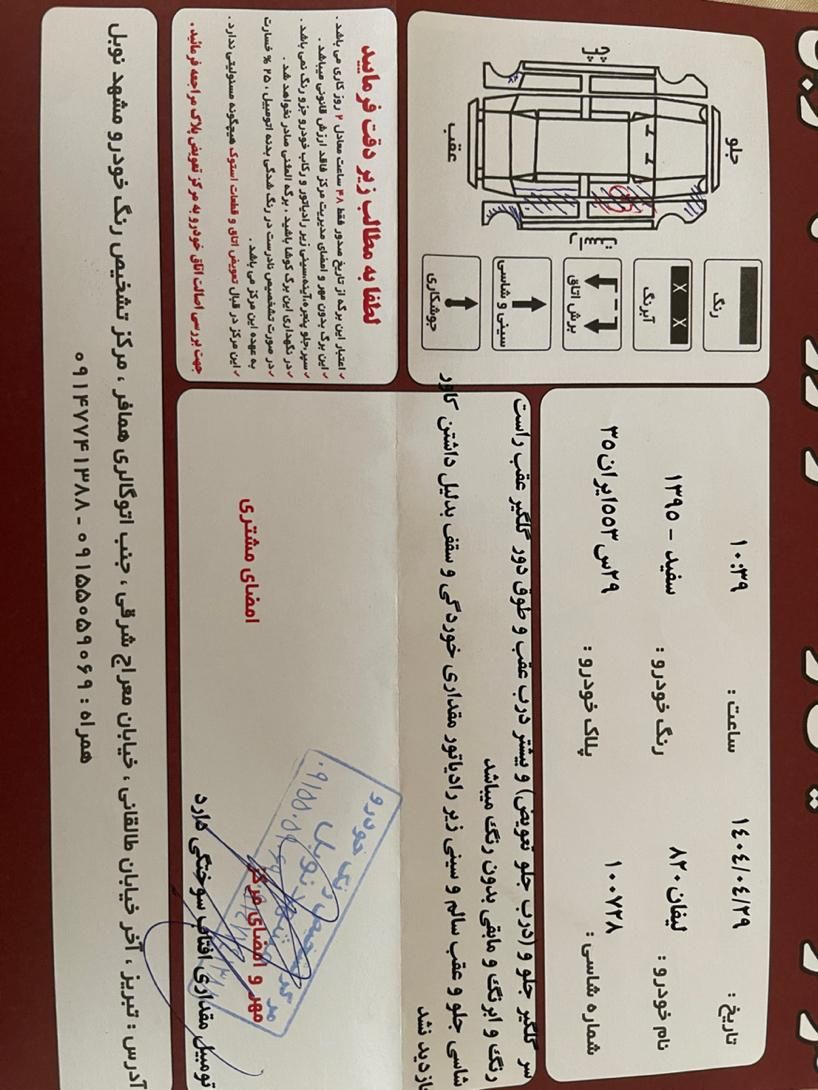 تاریخ : ۱۴۰۴/۰۴/۲۹
ساعت : ۱۰:۳۹
نام خودرو : لیفان ۸۲۰
رنگ خودرو : سفید - ۱۳۹۵
شماره شاسی : ۱۰۰۷۲۸
پلاک خودرو : ۲۹س۵۵۳ایران۳۵
جلو
عقب
چپ
راست
رنگ
آبرنگ
X X
برش اتاق
سینی و شاسی
جوشکاری
سر گلگیر جلو و (درب جلو تعویض) و بیشتر درب عقب و طوق دور گلگیر عقب راست
رنگ و ابرنگ و مابقی بدون رنگ میباشد
شاسی جلو و عقب سالم و سینی زیر رادیاتور مقداری خوردگی و سقف بدلیل داشتن کاور
بازدید نشد
تومبیل مقداری افتاب سوختگی دارد
مهر و امضای مرکز
امضای مشتری
لطفا به مطالب زیر دقت فرمایید
✓ اعتبار این برگه از تاریخ صدور فقط ۴۸ ساعت معادل ۲ روز کاری می باشد .
✓ این برگ بدون مهر و امضای مدیریت مرکز فاقد ارزش قانونی میباشد .
✓ سپر،جلو پنجره،آینه،سینی زیر رادیاتور و رکاب خودرو جزو رنگ نمی باشد .
✓ در نگهداری این برگ کوشا باشید ، برگه المثنی صادر نخواهد شد .
✓ در صورت تشخیص نادرست در رنگ شدگی بدنه اتومبیل ، ۲۵ % خسارت
به عهده این مرکز می باشد .
✓ این مرکز در قبال تعویض اتاق و قطعات استوک هیچگونه مسئولیتی ندارد .
جهت بررسی اصالت اتاق خودرو به مرکز تعویض پلاک مراجعه فرمائید.
آدرس : تبریز ، آخر خیابان طالقانی ، خیابان معراج شرقی ، جنب اتوگالری همافر ، مرکز تشخیص رنگ خودرو مشهد نوبل
همراه : ۰۹۱۵۵۰۵۹۰۶۹ - ۰۹۱۴۷۷۴۱۳۸۸